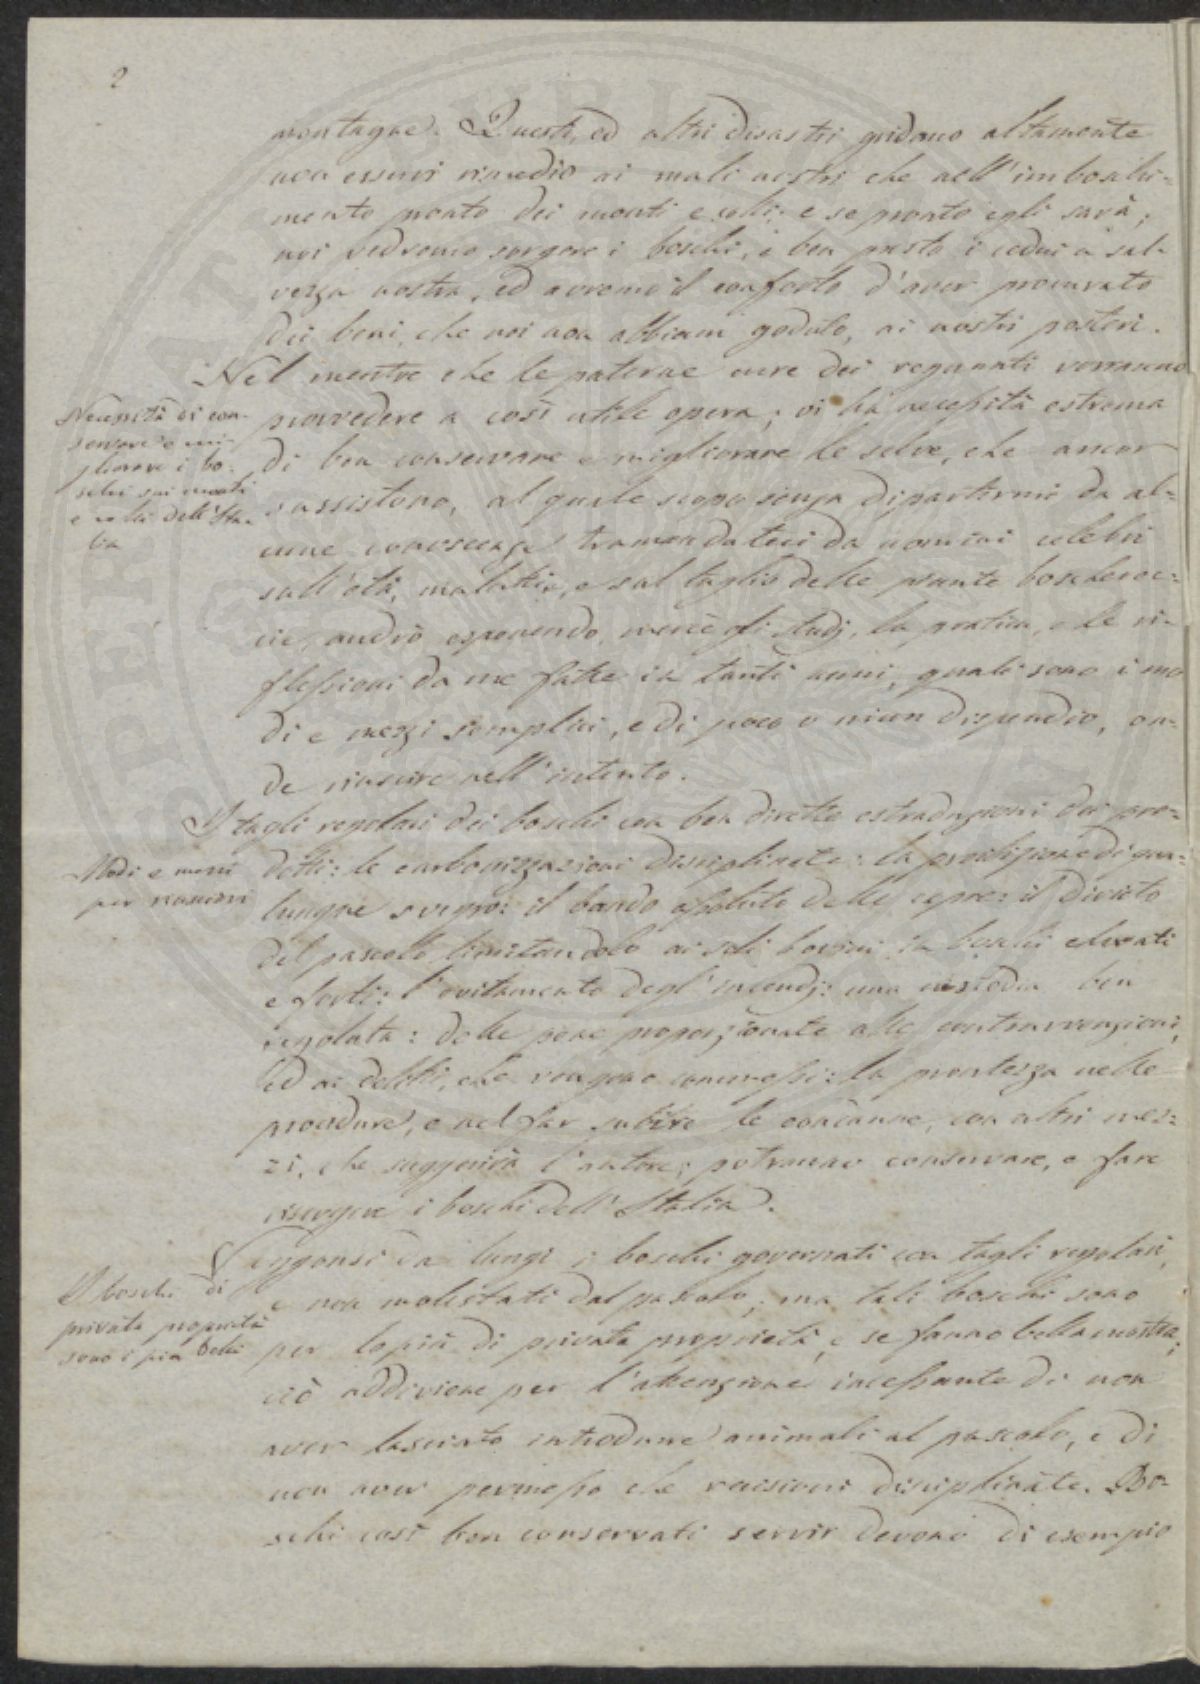 2
montagne. Questi, ed altri disastri gridano altamente
non esservi rimedio ai mali nostri che nell'imboschi=
mento pronto dei monti e colli; e se pronto egli sarà,
noi vedremo sorgere i boschi, e ben presto i cedui a sal-
vezza nostra, ed avremo il conforto d'aver procurato
dei beni, che noi non abbiam goduto, ai nostri posteri.
Nel mentre che le paterne cure dei regnanti vorranno
Necessità di con-
servare e mi-
gliorare i bo-
schi sui monti
e colli dell'Ita-
lia
provvedere a così utile opera, vi ha necessità estrema
di ben conservare e migliorare le selve, che ancor
sussistono, al quale scopo senza dipartirmi da al=
cune conoscenze tramandateci da uomini celebri
sull'età, malattie, e sul taglio delle piante boscherec=
cie, andrò esponendo, mercè gli studj, la pratica, e le ri-
flessioni da me fatte in tanti anni, quali sono i mo
di e mezzi semplici, e di poco o niun dispendio, on-
de riuscire nell'intento.
I tagli regolari dei boschi con ben dirette estraduzioni dei pro=
Modi e mezzi
per riuscirvi
dotti: le carbonizzazioni disciplinate: la proibizione di qua=
lunque svegro: il bando assoluto delle capre: il divieto
del pascolo limitandolo ai soli bovini in boschi elevati
e forti: l'evitamento degl'incendj: una custodia ben
regolata: delle pene proporzionate alle contravvenzioni,
ed ai delitti, che vengono commessi: la prontezza nelle
procedure, e nel far subire le condanne, con altri mez=
zi, che suggerirà l'autore; potranno conservare, e fare
risorgere i boschi dell'Italia.
Veggonsi da lungi i boschi governati con tagli regolari,
I boschi di
privata proprietà
sono i più belli
e non molestati dal pascolo, ma tali boschi sono
per lo più di privata proprietà, e se fanno bella mostra,
ciò addiviene per l'attenzione incessante di non
aver lasciato introdurre animali al pascolo, e di
non aver permesso che recisioni disciplinate. Bo-
schi così ben conservati servir devono di esempio